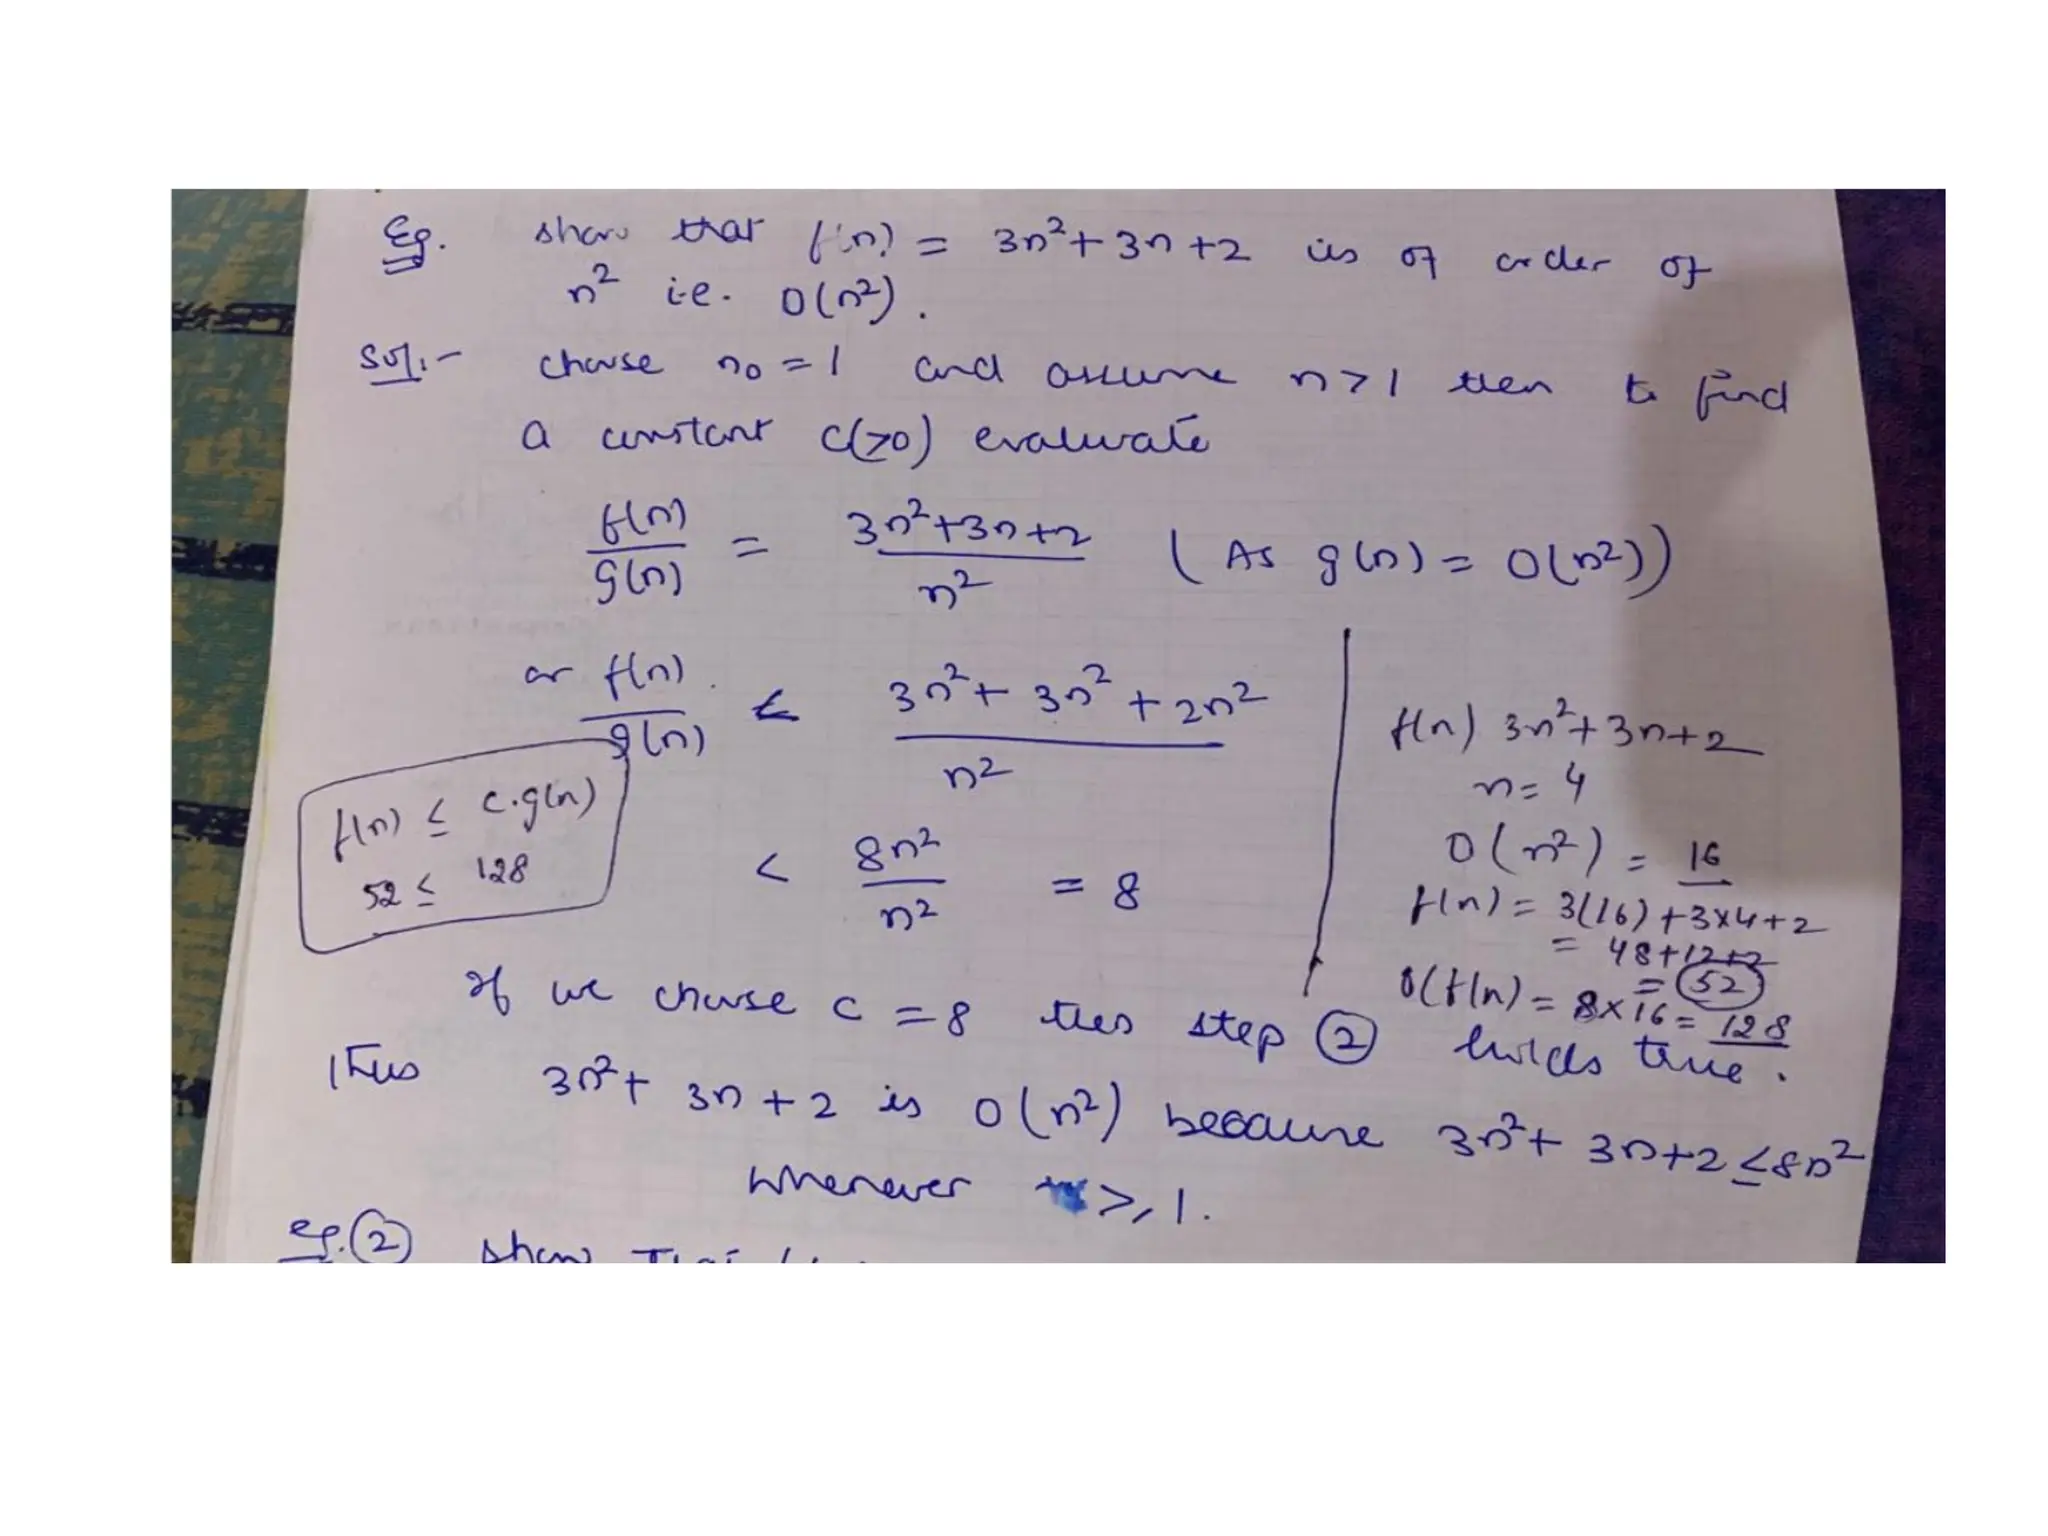 Eg. show that f(n) = 3n²+3n+2 is of order of
n² i.e. O(n²).
Sol:- choose n₀ = 1 and assume n>1 then to find
a constant c(>0) evaluate
f(n)/g(n) = (3n²+3n+2)/n² (As g(n) = O(n²))
or f(n)/g(n) < (3n²+3n²+2n²)/n²
< 8n²/n² = 8
f(n) ≤ c.g(n)
52 ≤ 128
f(n) 3n²+3n+2
n=4
O(n²) = 16
f(n) = 3(16)+3×4+2
= 48+12+2
= 52
8(f(n) = 8×16 = 128
If we choose c = 8 then step ② holds true.
Thus 3n²+3n+2 is O(n²) because 3n²+3n+2≤8n²
whenever >, 1.
eg.② show that